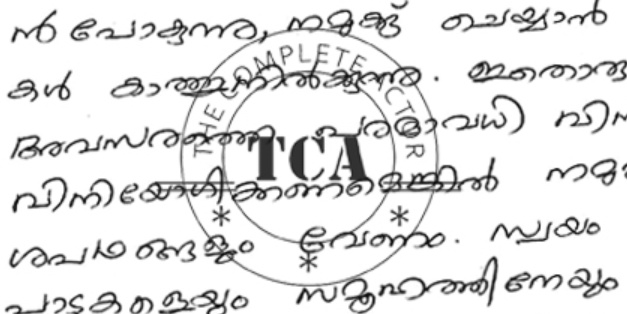 ൻ പോകുന്നു, നമുക്ക് ചെയ്യാൻ
കൾ കാത്തുനിൽക്കുന്നു. ഇതൊരു
അവസരത്തെ പരമാവധി വിന
വിനിയോഗിക്കണമെങ്കിൽ നമു
ശപഥങ്ങളും വേണം. സ്വയം
പാടുകളെയും സമൂഹത്തിനേയും
THE COMPLETE ACTOR
TCA